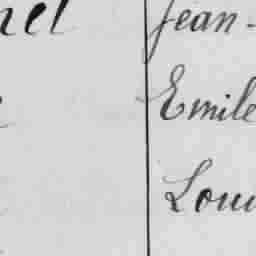 nel Jean-
Emile
Lou